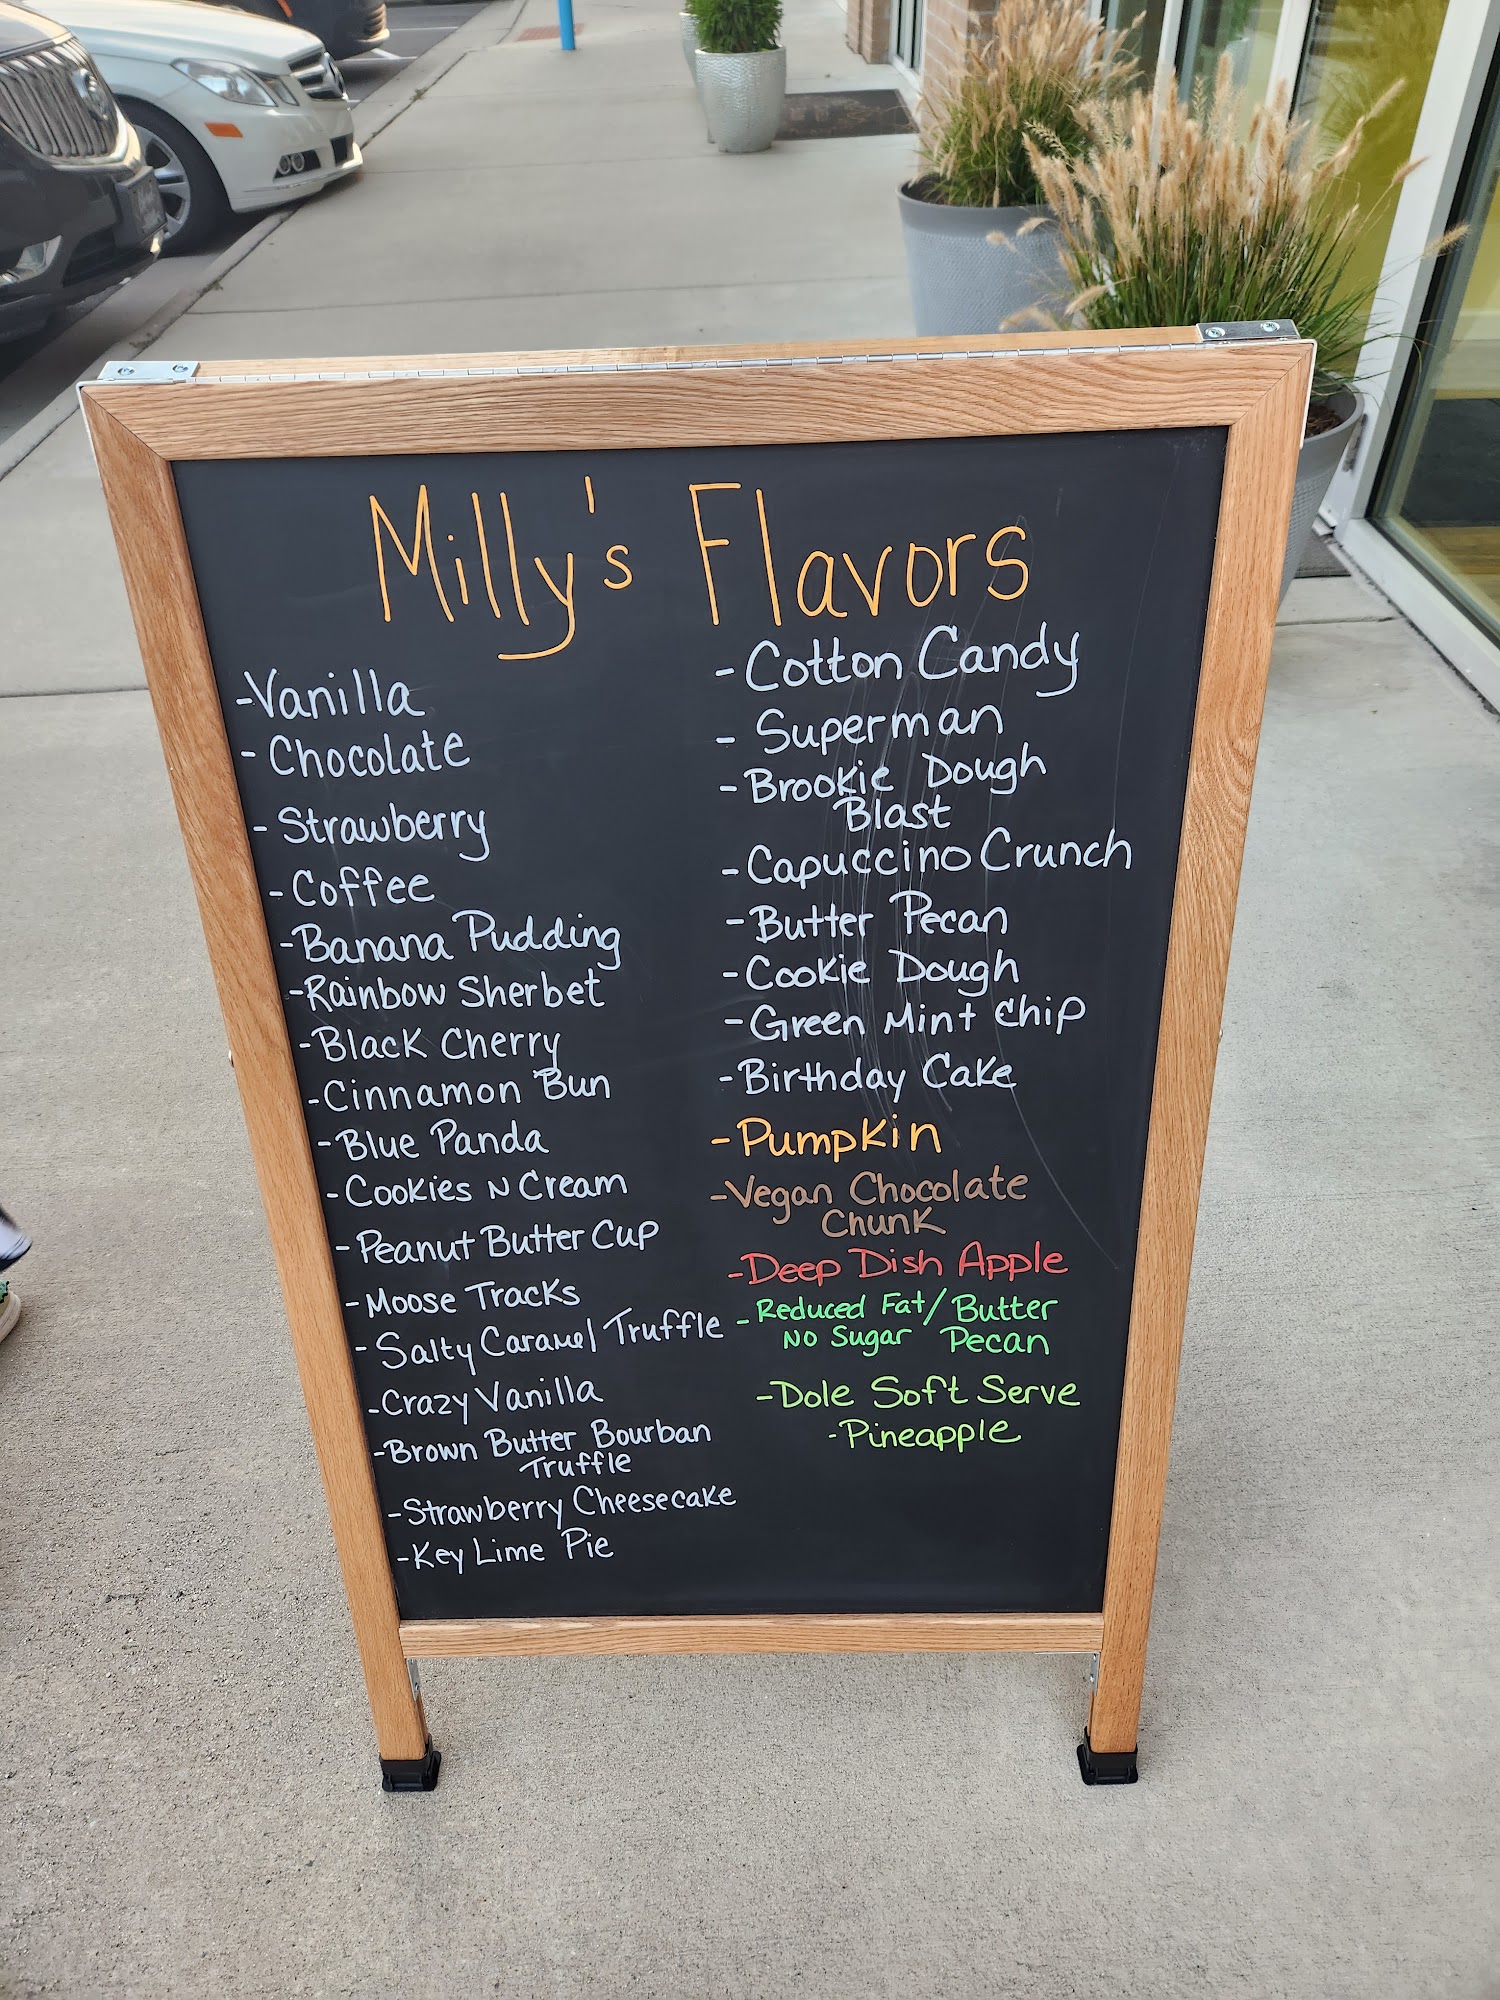 Milly's Flavors
-Vanilla
- Chocolate
- Strawberry
- Coffee
-Banana Pudding
-Rainbow Sherbet
-Black Cherry
-Cinnamon Bun
-Blue Panda
-Cookies N Cream
-Peanut Butter Cup
-Moose Tracks
- Salty Caramel Truffle
-Crazy Vanilla
-Brown Butter Bourban
Truffle
-Strawberry Cheesecake
-Key Lime Pie
-Cotton Candy
- Superman
-Brookie Dough
Blast
-Capuccino Crunch
-Butter Pecan
-Cookie Dough
-Green Mint Chip
-Birthday Cake
-Pumpkin
-Vegan Chocolate
Chunk
-Deep Dish Apple
-Reduced Fat/Butter
No Sugar Pecan
-Dole Soft Serve
-Pineapple